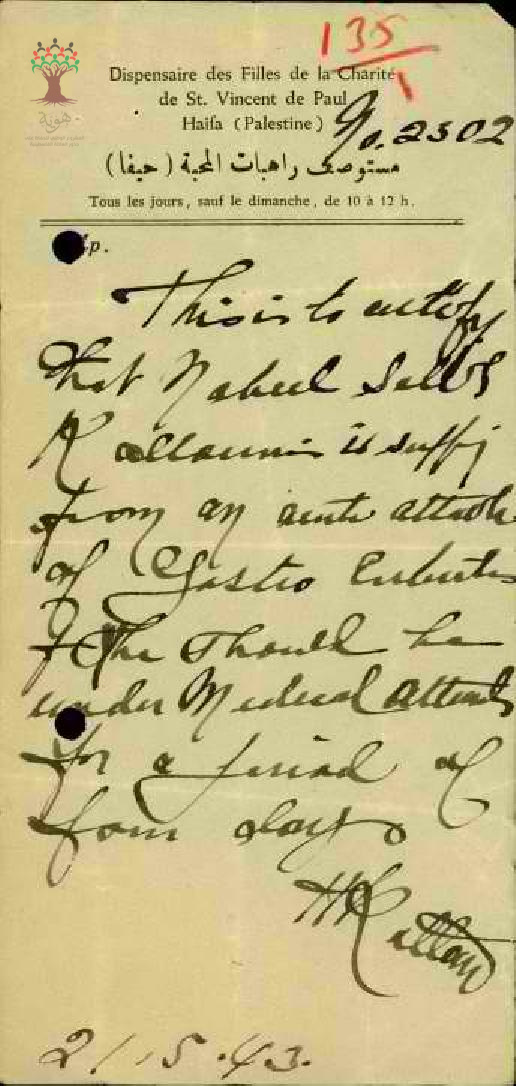 135
1
Dispensaire des Filles de la Charité
de St. Vincent de Paul
Haifa (Palestine)
No. 2302
مستوصف راهبات المحبة (حيفا)
Tous les jours, sauf le dimanche, de 10 à 12 h.
p.
This is to certify
that Nabeel
is suffg
from an acute attack
of Gastro
& he should be
under Medical Attent
for a period of
four days
HKattan
21.5.43.
هوية